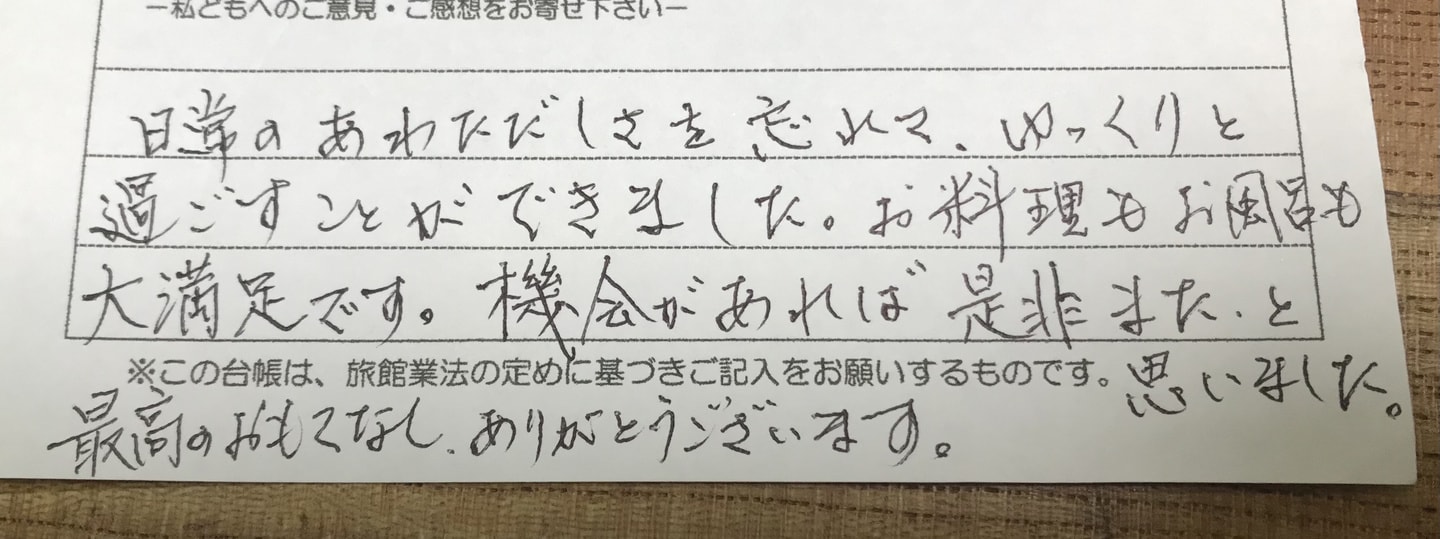 ー私どもへのご意見・ご感想をお寄せ下さいー
日常のあわただしさを忘れて、ゆっくりと
過ごすことができました。お料理もお風呂も
大満足です。機会があれば是非また、と
※この台帳は、旅館業法の定めに基づきご記入をお願いするものです。
思いました。
最高のおもてなし、ありがとうございます。